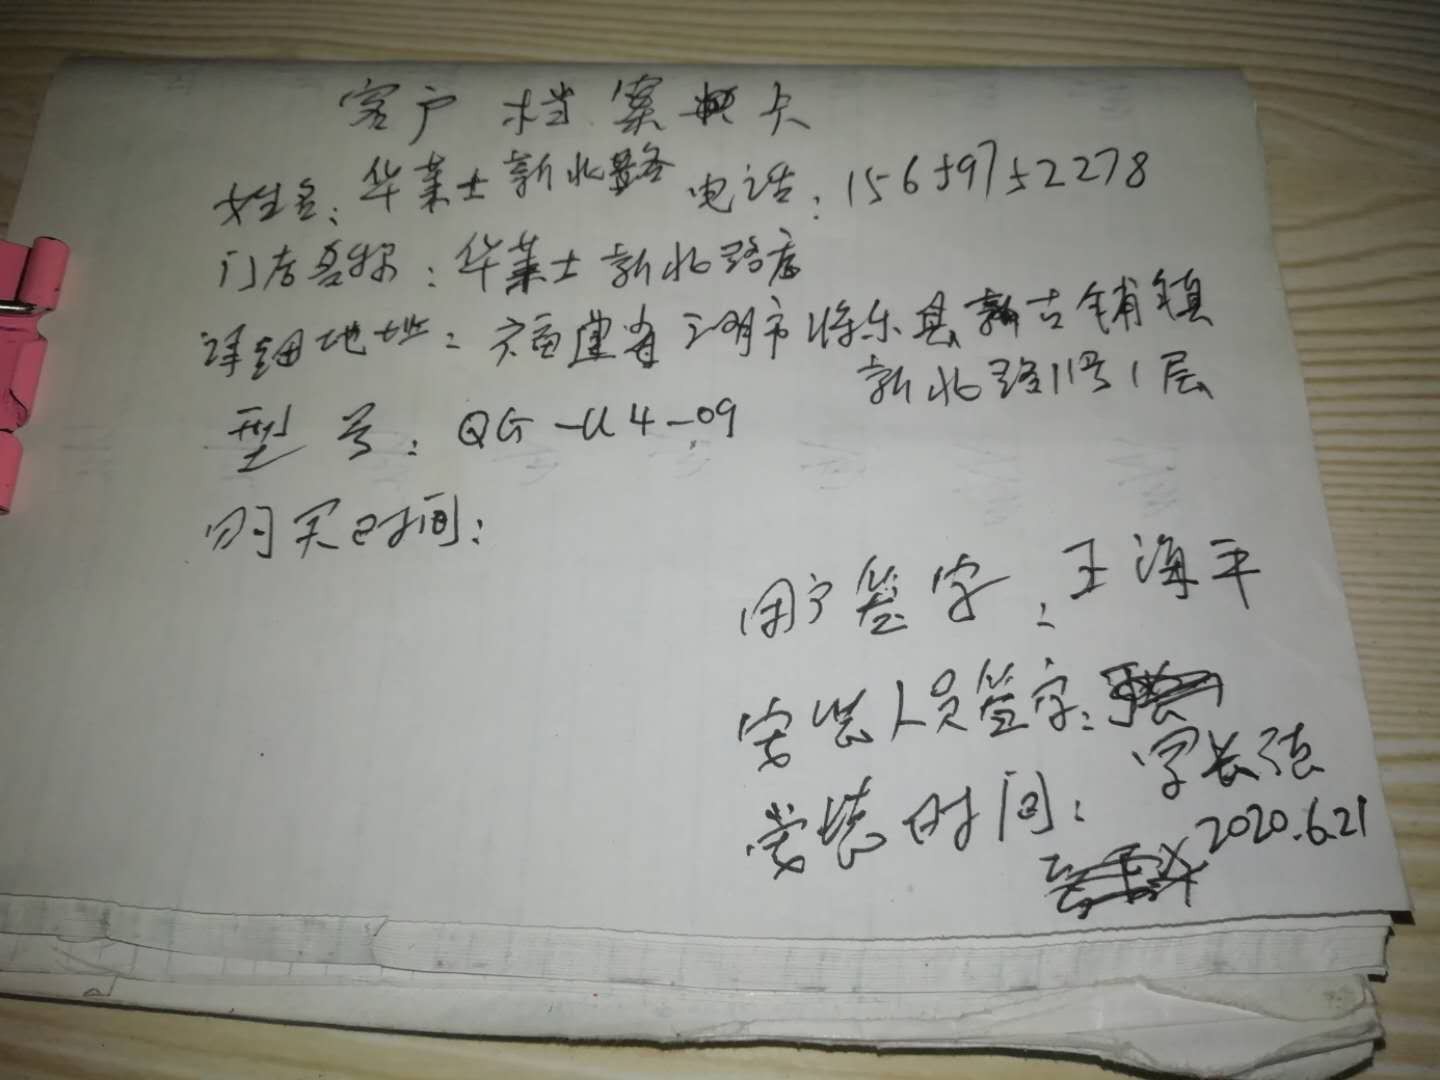 客户档案卡
姓名：华莱士新北路 电话：15659752278
门店名称：华莱士新北路店
详细地址：福建省三明市将乐县古镛镇
新北路11号1层
型号：QG-U4-09
购买时间：
用户签字：王海平
安装人员签字：
长强
安装时间：2020.6.21